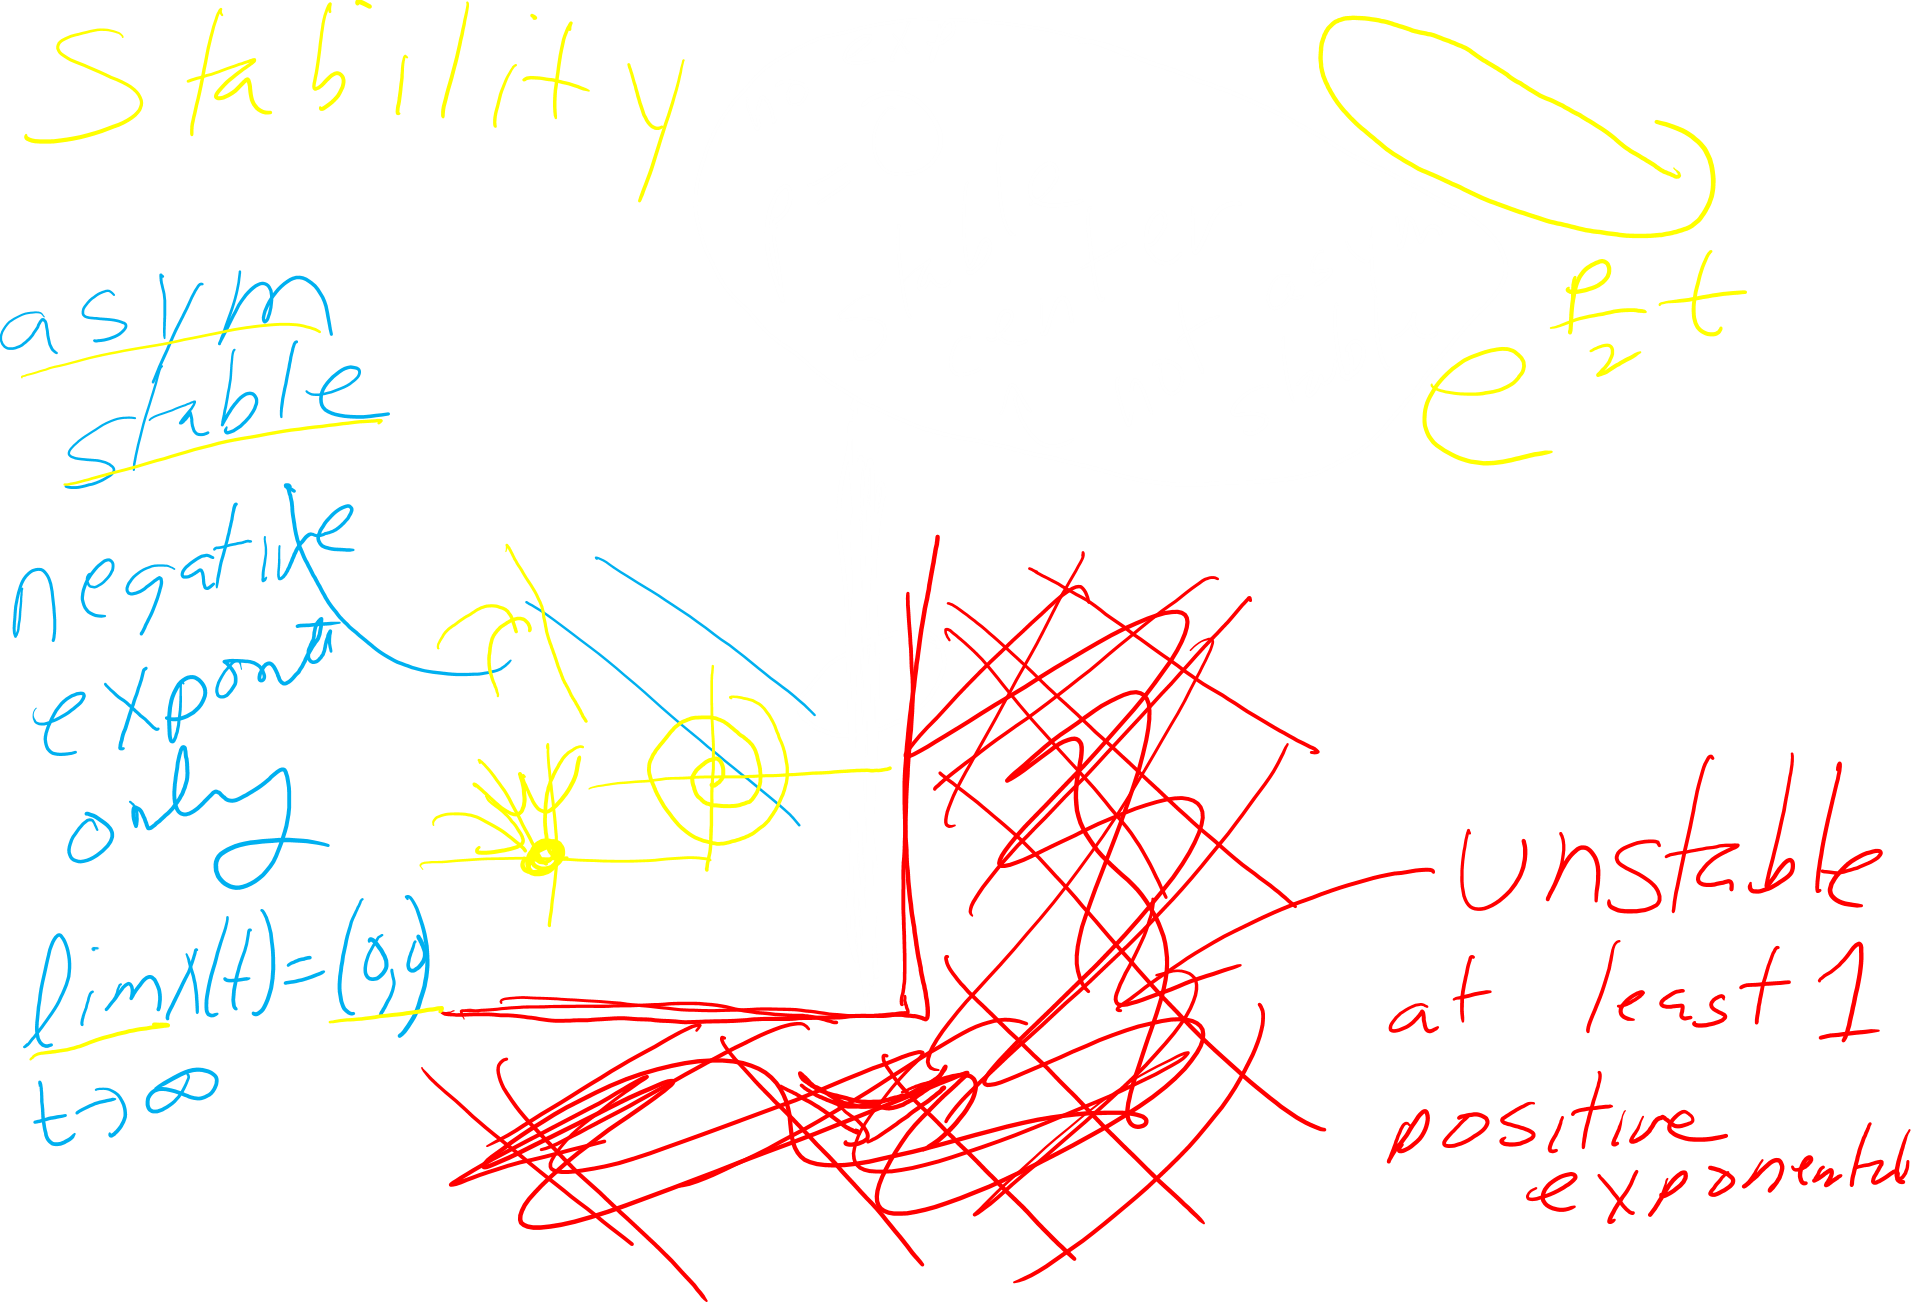 Stability
e^{p/2 t}
asym
stable
negative
exponent
only
lim x(t) = (0,0)
t→∞
unstable
at least 1
positive
exponential